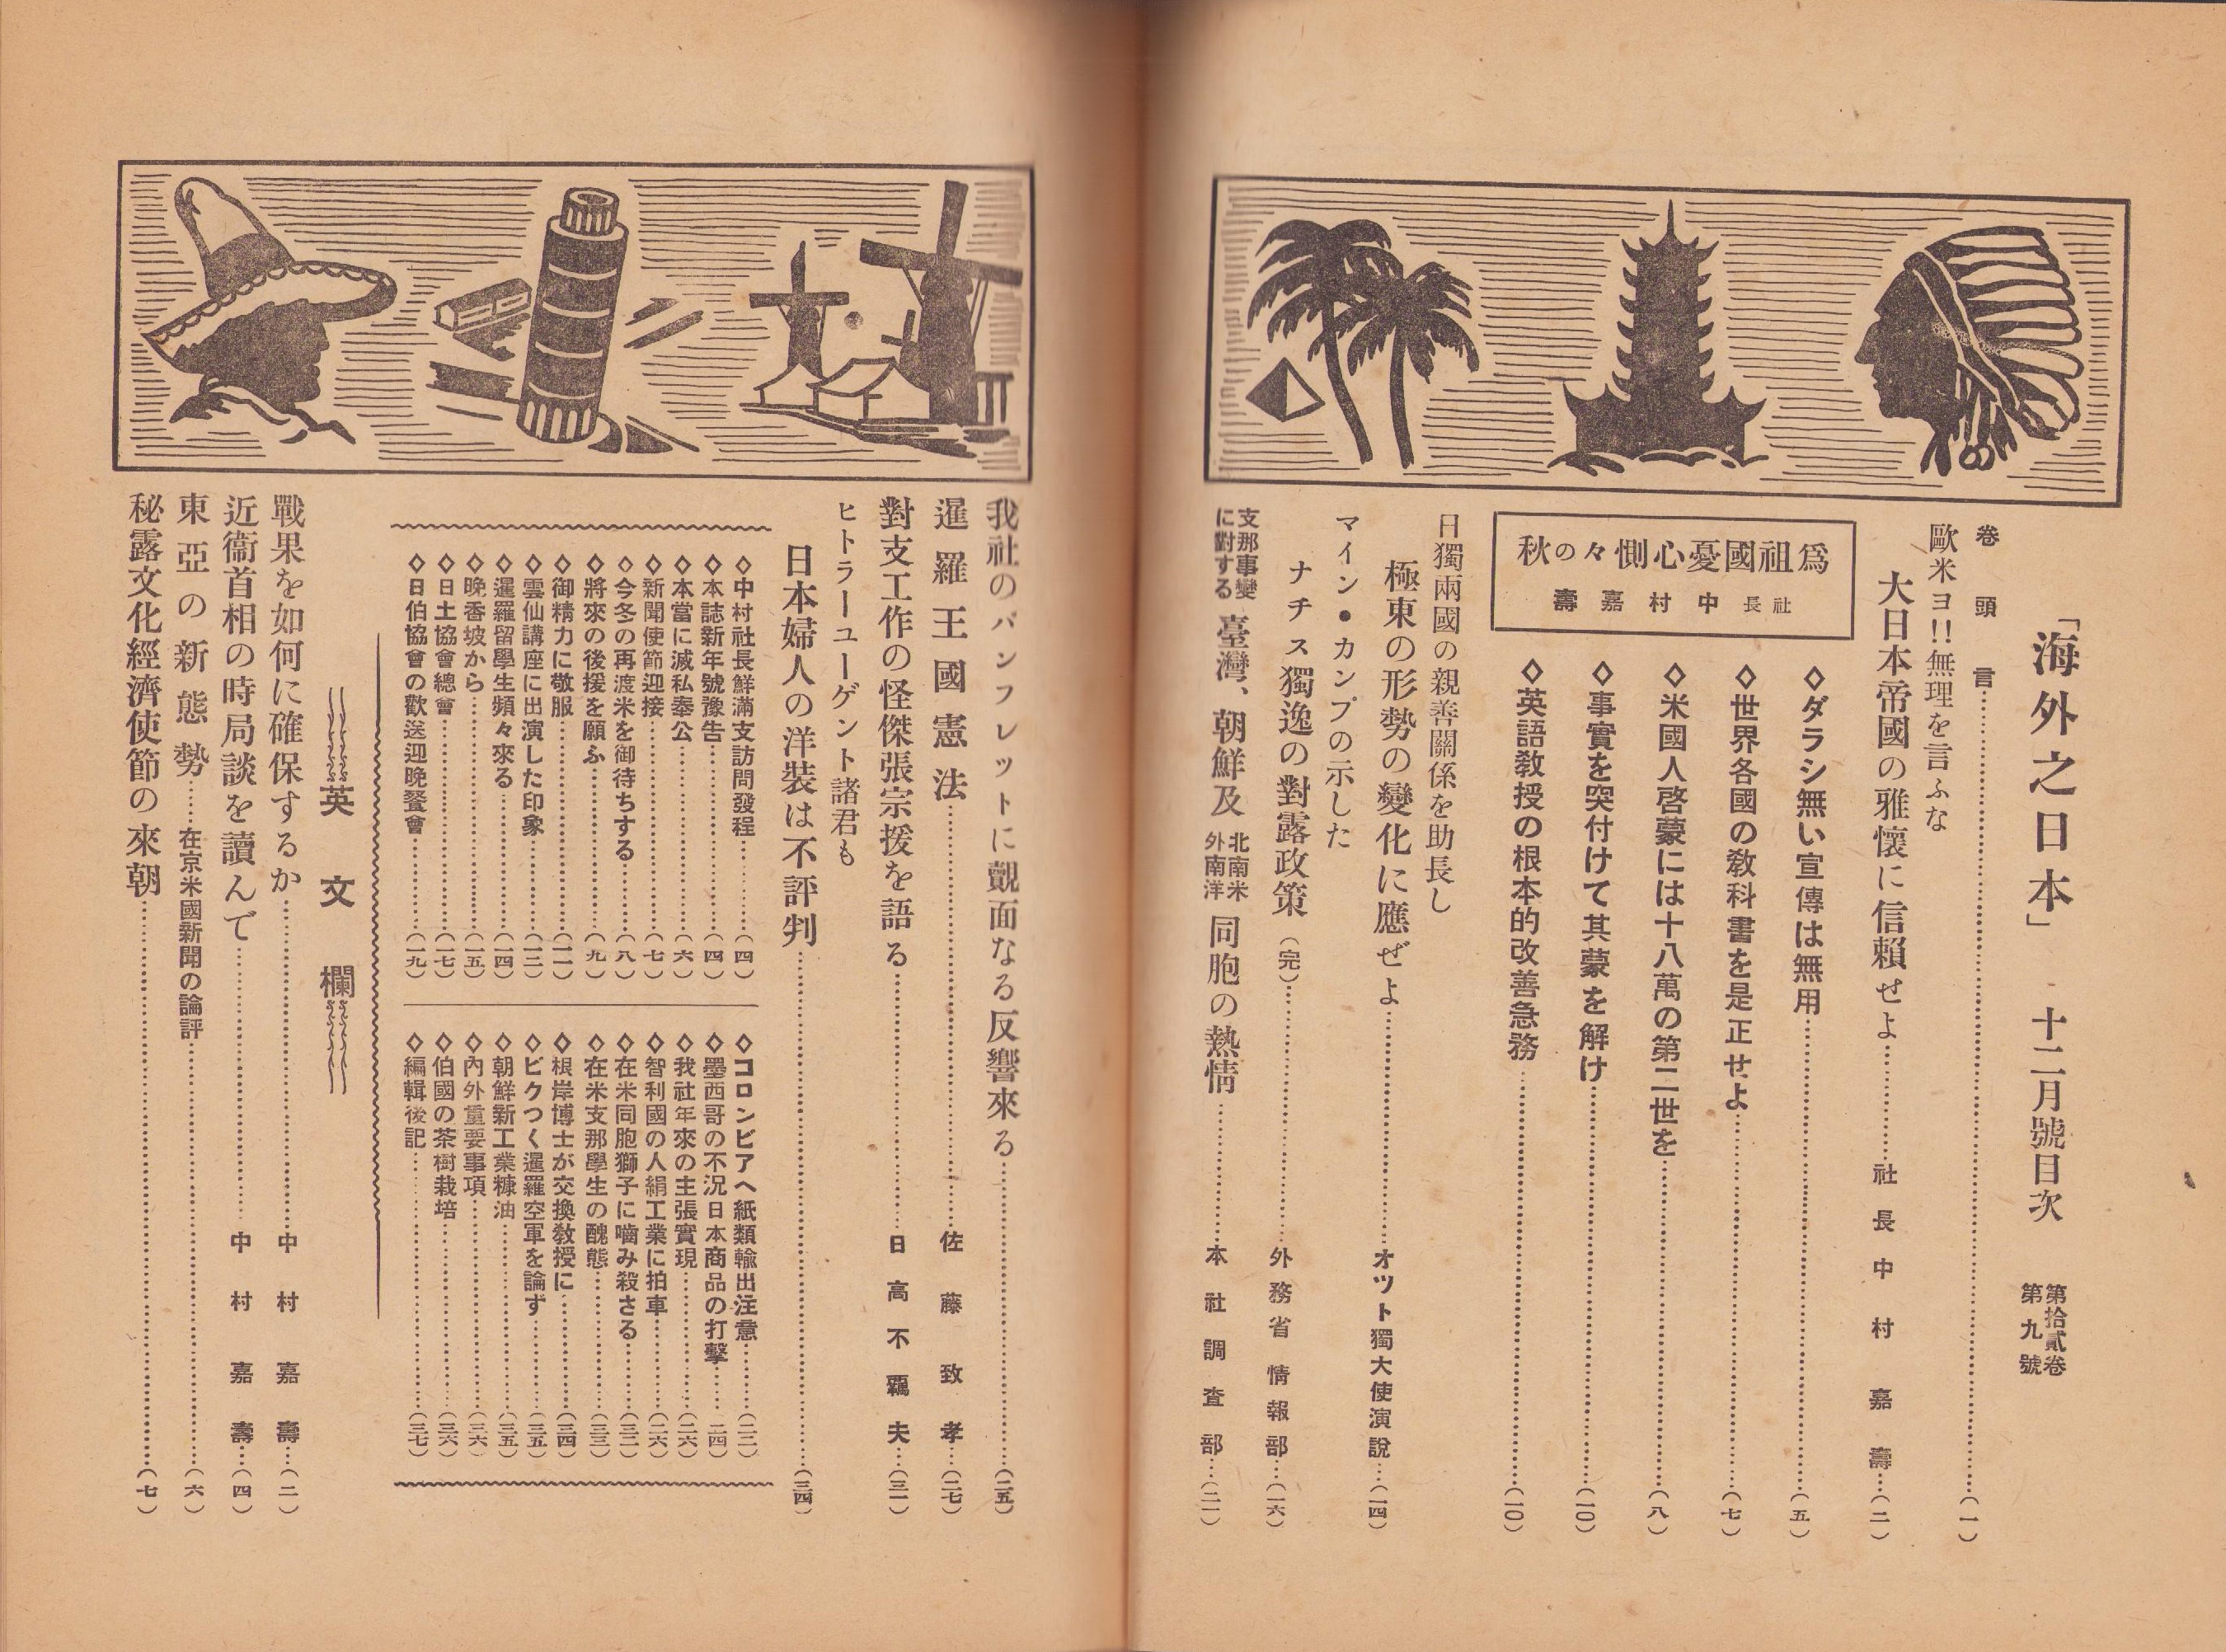 「海外之日本」 十二月號目次 第拾貳卷 第九號
卷頭言……(一)
歐米ヨ!!無理を言ふな
大日本帝國の雅懷に信賴せよ……社長 中村嘉壽…(二)
爲祖國憂心惻々の秋
社長 中村嘉壽
◇ダラシ無い宣傳は無用……(五)
◇世界各國の敎科書を是正せよ……(七)
◇米國人啓蒙には十八萬の第二世を……(八)
◇事實を突付けて其蒙を解け……(一〇)
◇英語敎授の根本的改善急務……(一〇)
日獨兩國の親善關係を助長し
極東の形勢の變化に應ぜよ……オツト獨大使演說…(一四)
マイン・カンプの示した
ナチス獨逸の對露政策(完)……外務省情報部…(一六)
支那事變に對する 臺灣、朝鮮及 北南米外南洋 同胞の熱情……本社調査部…(二一)
我社のパンフレットに覿面なる反響來る……(二五)
暹羅王國憲法……佐藤致孝…(二七)
對支工作の怪傑張宗援を語る……日高不羈夫…(三一)
ヒトラーユーゲント諸君も
日本婦人の洋裝は不評判……(三四)
◇中村社長鮮滿支訪問發程……(四)
◇本誌新年號豫告……(四)
◇本當に滅私奉公……(六)
◇新聞使節迎接……(七)
◇今冬の再渡米を御待ちする……(八)
◇將來の後援を願ふ……(九)
◇御精力に敬服……(一一)
◇雲仙講座に出演した印象……(一三)
◇暹羅留學生頻々來る……(一四)
◇晚香坡から……(一五)
◇日土協會總會……(一七)
◇日伯協會の歡送迎晚餐會……(一九)
◇コロンビアへ紙類輸出注意……(二三)
◇墨西哥の不況日本商品の打擊……(二四)
◇我社年來の主張實現……(二六)
◇智利國の人絹工業に拍車……(二六)
◇在米同胞獅子に嚙み殺さる……(三二)
◇在米支那學生の醜態……(三三)
◇根岸博士が交換敎授に……(三四)
◇ビクつく暹羅空軍を論ず……(三五)
◇朝鮮新工業糠油……(三五)
◇內外重要事項……(三六)
◇伯國の茶樹栽培……(三六)
◇編輯後記……(三七)
英文欄
戰果を如何に確保するか……中村嘉壽…(二)
近衞首相の時局談を讀んで……中村嘉壽…(四)
東亞の新態勢……在京米國新聞の論評……(六)
秘露文化經濟使節の來朝……(七)